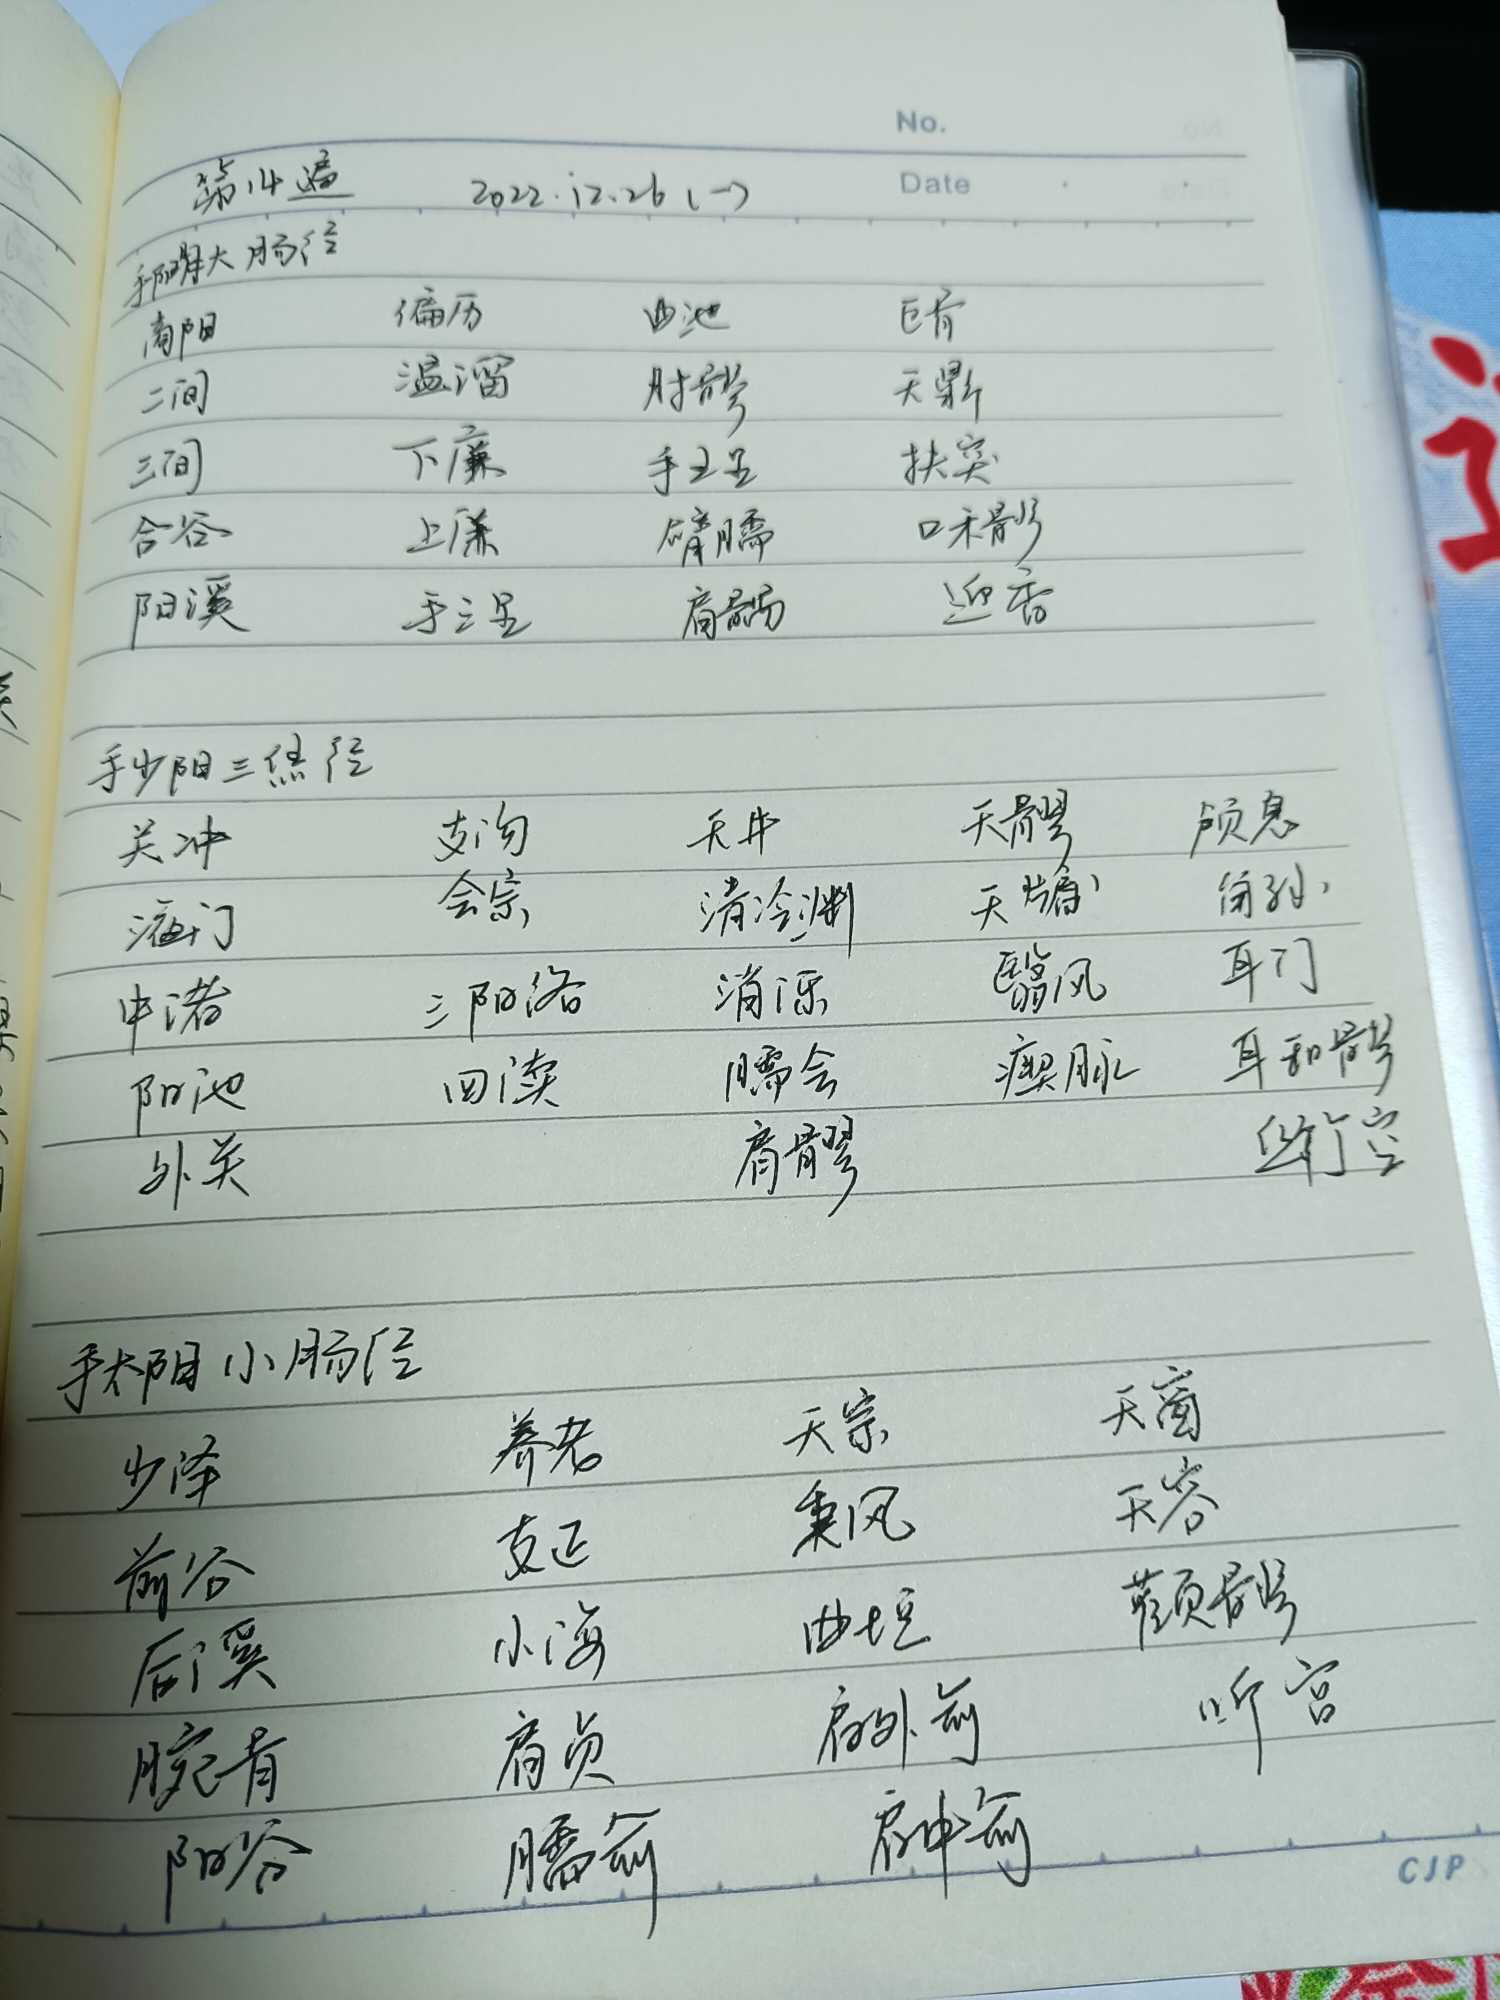 No.
第14遍 2022.12.26 (一) Date
手阳明大肠经
商阳 偏历 曲池 巨骨
二间 温溜 肘髎 天鼎
三间 下廉 手五里 扶突
合谷 上廉 臂臑 口禾髎
阳溪 手三里 肩髃 迎香
手少阳三焦经
关冲 支沟 天井 天髎 颅息
液门 会宗 清冷渊 天牖 角孙
中渚 三阳络 消泺 翳风 耳门
阳池 四渎 臑会 瘈脉 耳和髎
外关 肩髎 丝竹空
手太阳小肠经
少泽 养老 天宗 天窗
前谷 支正 秉风 天容
后溪 小海 曲垣 颧髎
腕骨 肩贞 肩外俞 听宫
阳谷 臑俞 肩中俞
CJP